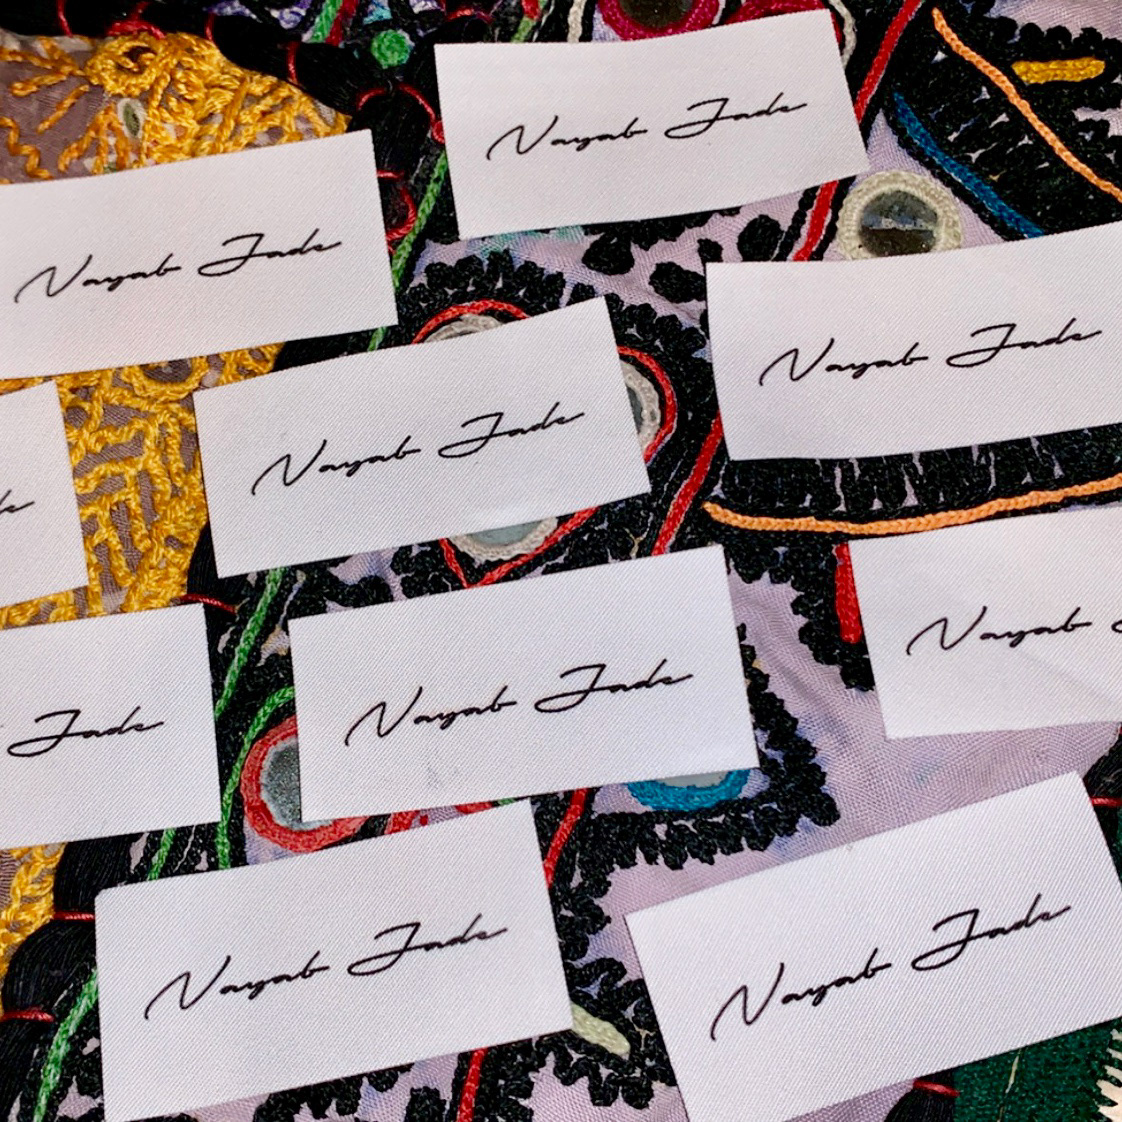 Nayab Jade
Nayab Jade
Nayab Jade
Nayab Jade
Jade
Nayab Jade
Nayab
Nayab Jade
Nayab Jade